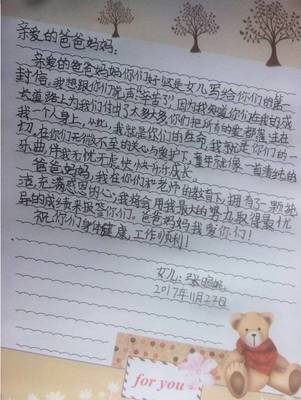 亲爱的爸爸妈妈:
亲爱的爸爸妈妈你们好!这是女儿写给你们的第一
封信,我想跟你们说声"辛苦了!"因为我知道你们在我的成
长道路上为我们付出了太多太多你们把所有的爱都灌注在
我一个人身上,从此,我就是你们的生命,我就是你们的一
切。在你们无微不至的关心与爱护下,童年就像一首清纯的
乐曲,伴我无忧无虑、快快乐乐成长。
爸爸妈妈,我在你们和老师的教育下,拥有了一颗纯
洁、充满感恩的心,我将会用我最大的努力取得最优
异的成绩来报答你们。爸爸妈妈我爱你们!
祝你们身体健康,工作顺利!
女儿:张
2017年11月27日
for you